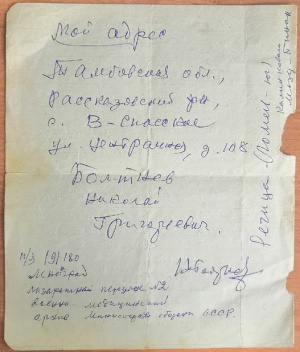 Мой адрес
Тамбовская обл.,
Рассказовский р-н,
с. В-Спасское
ул. Центральная, д. 108
Болтнев
Николай
Григорьевич.
п/я 19/180
Ленинград
Лазаретный переулок 2
Военно-медицинский
архив Министерства обороны СССР.
Речица (Гомел-